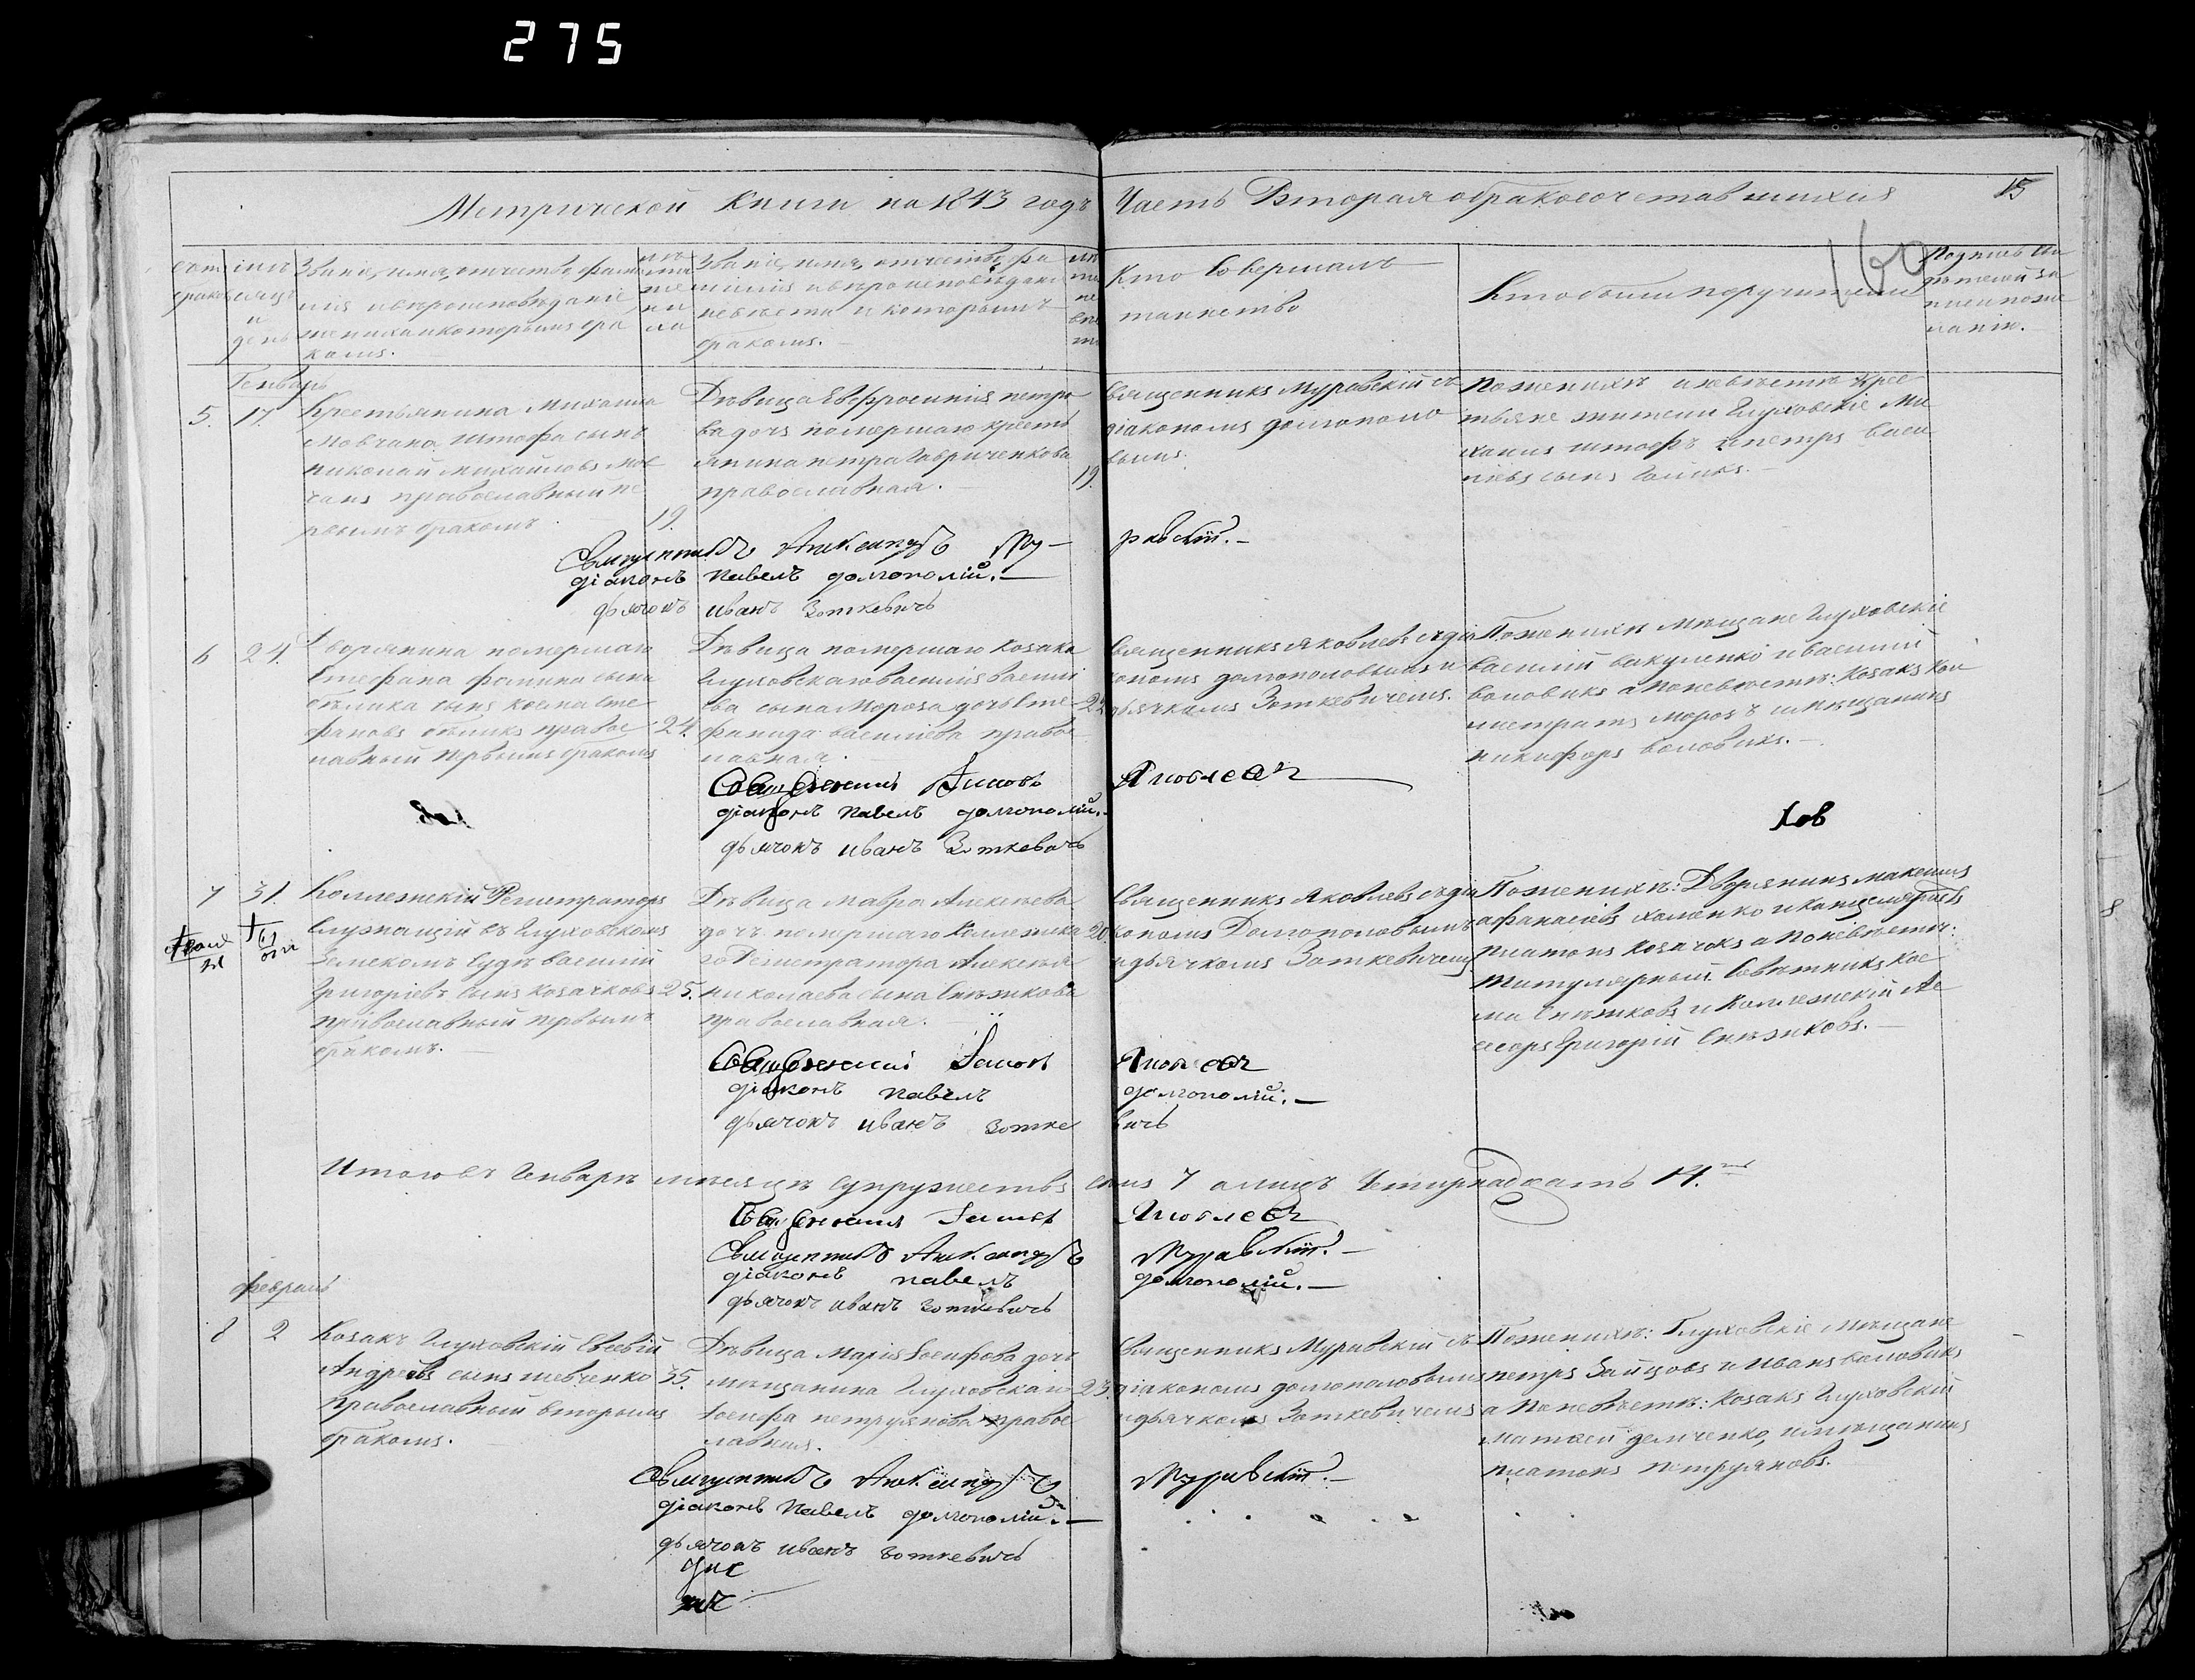 275
Метрической Книги на 1843 годъ Часть Вторая обракосочетавшихся
15
160
Званіе, имя, отчество, фами
лія и вѣроисповѣданіе
жениха и которымъ бра
комъ.
лѣ
та
же
ни
ха
Званіе, имя, отчество, фа
милія и вѣроисповѣданіе
невѣсты и которымъ
бракомъ.
лѣ
та
не
вѣс
ты
Кто Совершалъ
таинство
Кто были поручители
Подпись Сви
дѣтелей за
писи по же
ланію.
Генварь
5. 17.
Крестьянина Михаила
Мовчана Штофа сынъ
Николай Михайловъ Мов
чанъ православный пе
рвымъ бракомъ
19.
Дѣвица Евфросинія петро
ва дочь помершаго кресть
янина петра Гавриченкова
православная.
19.
Священникъ Муравскій съ
діакономъ долгополо
вымъ
По женихѣ и невѣстѣ Крес
тьяне жители Глуховскіе Ми
хаилъ Штофъ и петръ Васи
ліевъ сынъ
Священникъ Александръ Му-
равскій.
діаконъ павелъ долгополій.
дьячокъ иванъ Зоткевичъ
6 24.
Дворянина помершаго
Стефана сына
Бѣлика сынъ Косма Сте
фановъ Бѣликъ правос
лавный первымъ бракомъ
24.
Дѣвица помершаго Козака
Глуховскаго Василія Василі
ева сына Мороза дочь Сте
фанида Василіева правос
лавная
22
Священникъ Яковлевъ съ діа
кономъ долгополовымъ и
дьячкомъ Зоткевичемъ.
По женихѣ Мѣщане Глуховскіе
Василій Вакуленко и Василій
Воловикъ а по невѣстѣ: Козакъ Кали
стратъ Морозъ и Мѣщанинъ
Никифоръ Воловикъ.
Священникъ Іаковъ Яковлевъ
діаконъ павелъ долгополій.
дьячокъ иванъ Зоткевичъ
7 31.
Коллежскій Регистраторъ
Служащій въ Глуховскомъ
Земскомъ Судѣ Василій
Григоріевъ сынъ Козачковъ
православный первымъ
бракомъ.
25.
Дѣвица Мавра Алексѣева
дочь помершаго Коллежска
го Регистратора Алексѣя
Николаева сына Снѣжкова
православная.
20
Священникъ Яковлевъ съ діа
кономъ Долгополовымъ
и дьячкомъ Зоткевичемъ
По женихѣ: Дворянинъ Максимъ
Афанасіевъ Халанко и Канцеляристъ
Платонъ Козачокъ а по невѣстѣ:
Титулярный Совѣтникъ Кос
ма Снѣжковъ и Коллежскій Ас
сесоръ Григорій Снѣжковъ.
Священникъ Іаковъ Яковлевъ
діаконъ павелъ долгополій.
дьячокъ иванъ Зотке вичъ
Итого въ Генварѣ мѣсяцѣ супружествъ семь 7 а лицъ Четырнадцать 14.
Священникъ Іаковъ Яковлевъ
Священникъ Александръ Муравскій.
діаконъ павелъ долгополій.
дьячокъ иванъ Зоткевичъ
февраль
8 2
Козакъ Глуховскій Евсевій
Андреевъ сынъ шевченко
Православный вторымъ
бракомъ.
35.
Дѣвица Марія Іосифова дочь
мѣщанина Глуховскаго
Іосифа петрунова правос
лавная.
23.
Священникъ Муравскій съ
діакономъ долгополовымъ
и дьячкомъ Зоткевичемъ
По женихѣ: Глуховскіе Мѣщане
петръ Зайцовъ и Иванъ Воловикъ
а по невѣстѣ: Козакъ Глуховскій
Матвей демченко, и мѣщанинъ
платонъ петруновъ.
Священникъ Александръ Муравскій.
діаконъ павелъ долгополій.
дьячокъ иванъ Зоткевичъ